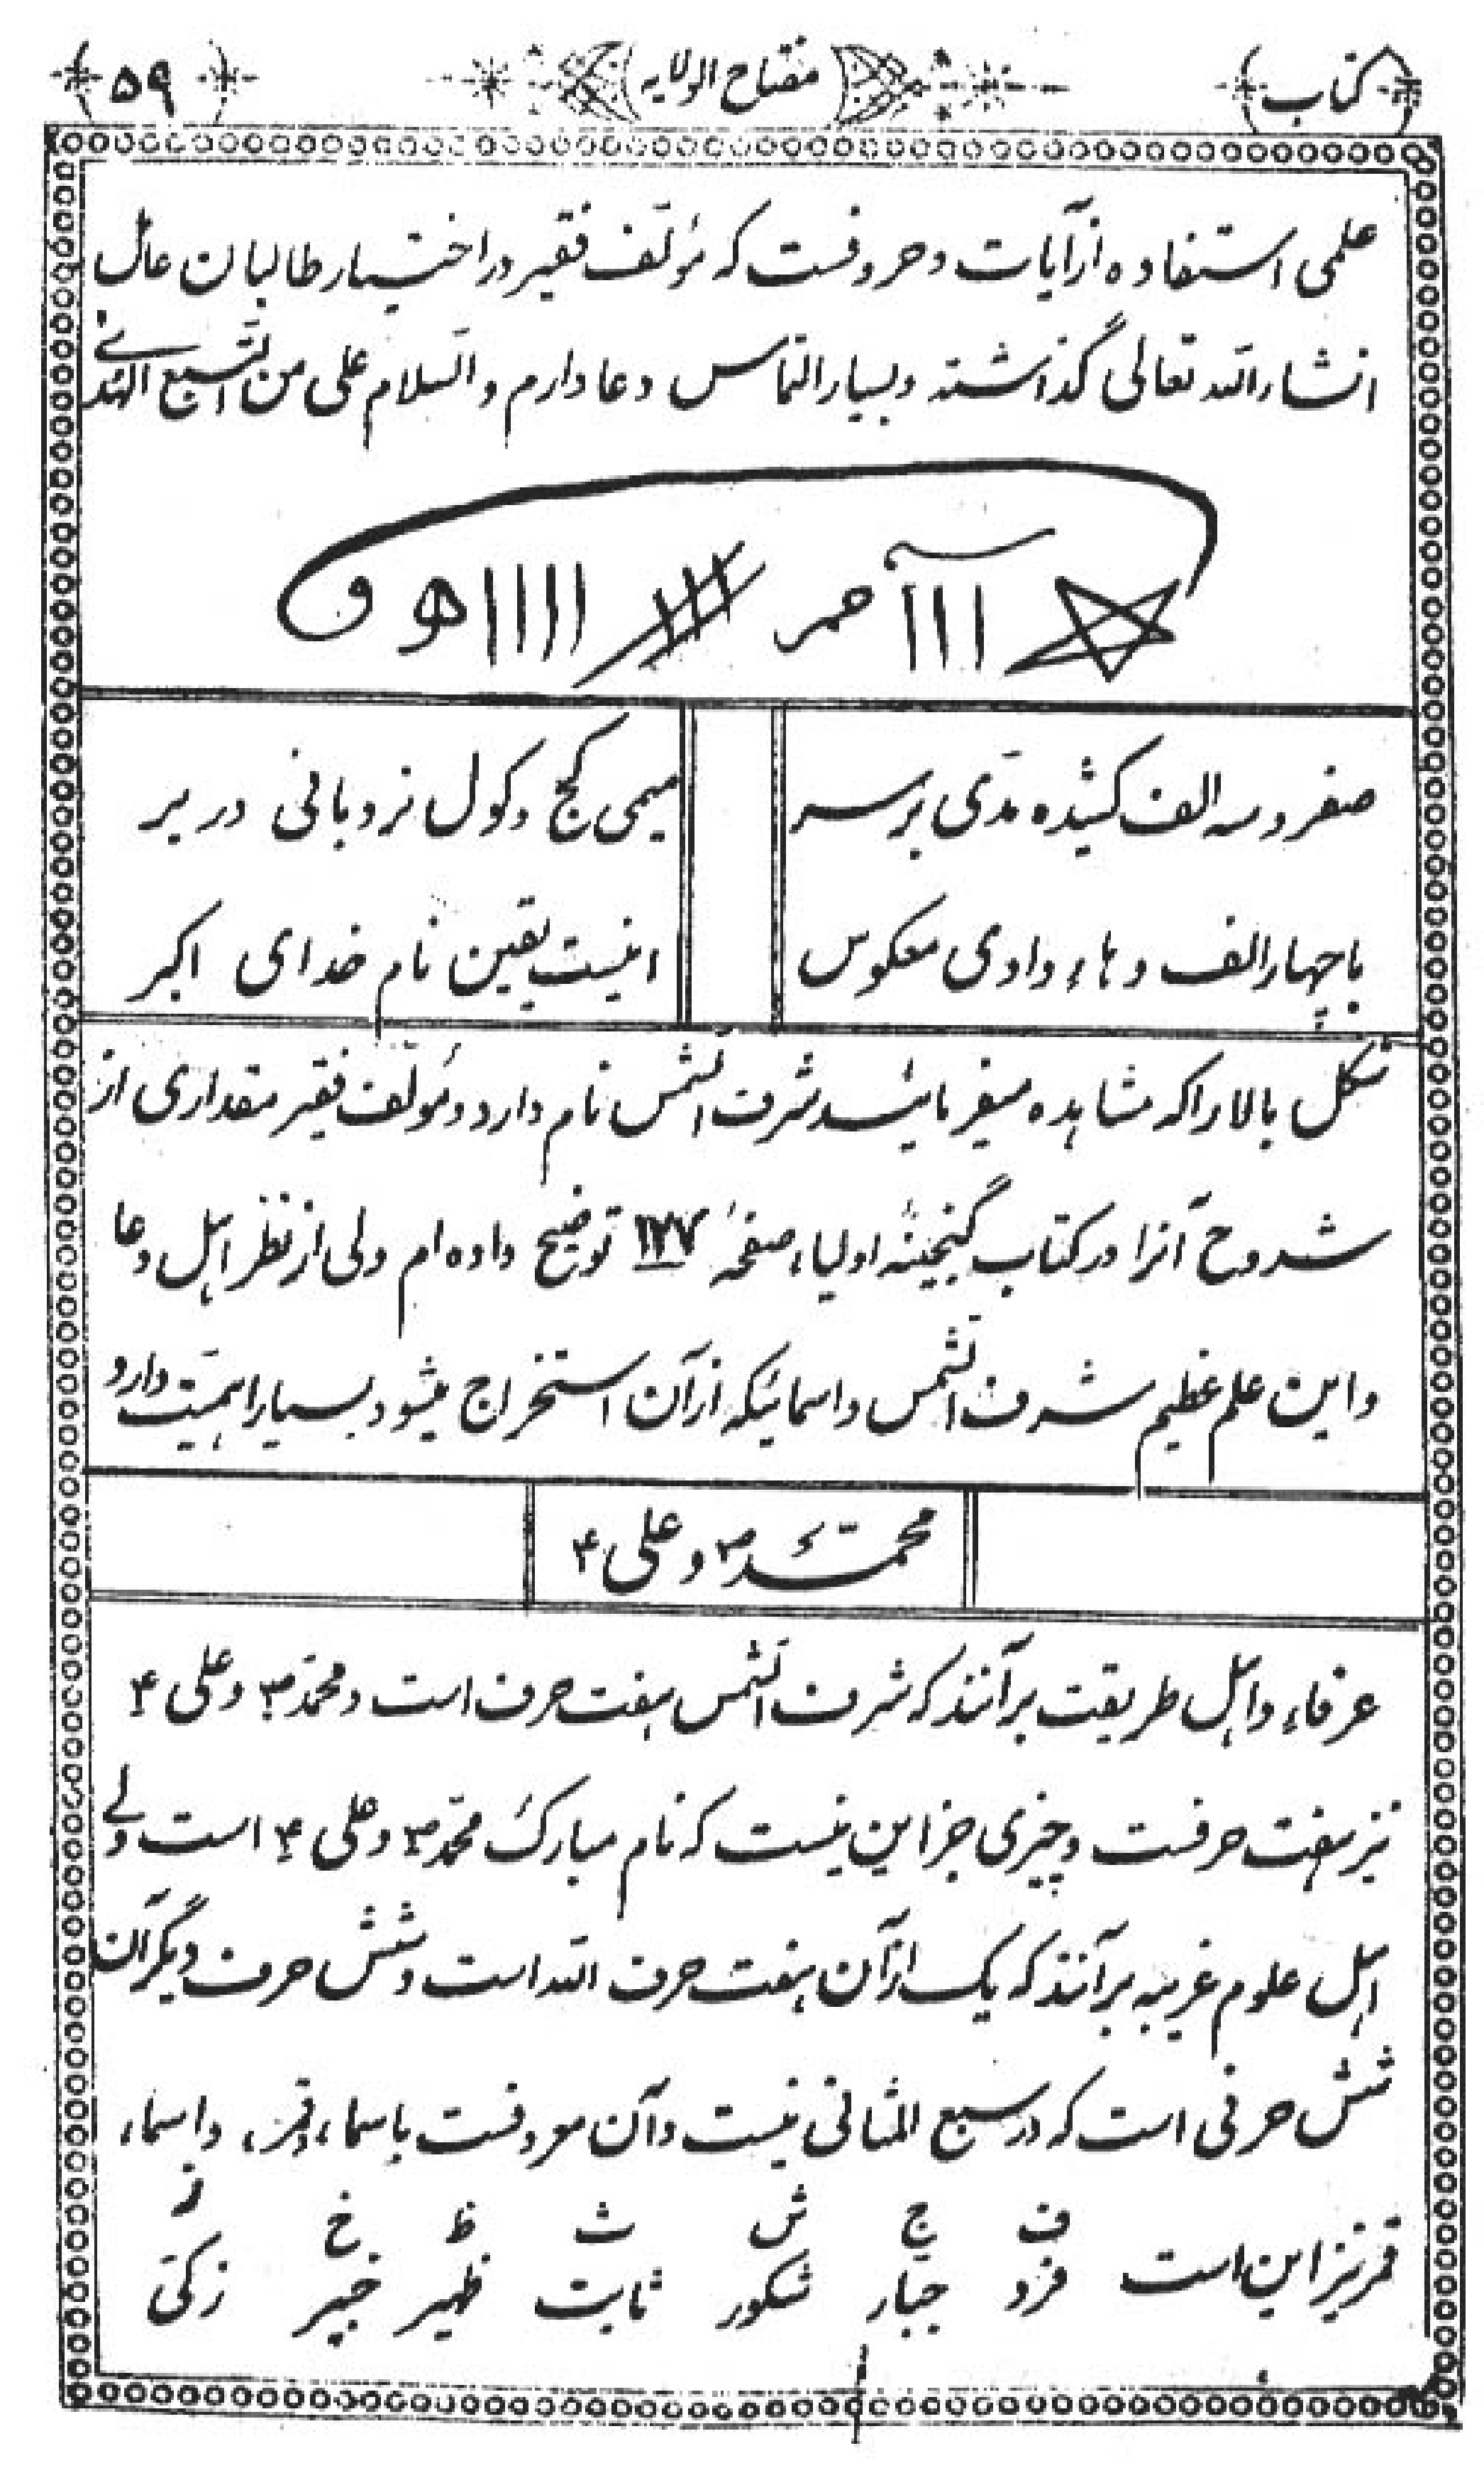 کتاب مفتاح الولایه ۵۹
علمی استفاده از آیات و حروفست که مؤلّف فقیر در اختیار طالبان عالی
انشاءالله تعالی گذاشته و بسیار التماس دعا دارم والسّلام علی من التّبع الهُدی
ااا آ حمر ااا اااا ھ و
صفر و سه الف کشیده مدّی بر سر میمی کج و کول نردبانی در بر
با چهار الف و هاء و واوی معکوس اینست یقین نام خدای اکبر
شکل بالا را که مشاهده میفرمائید شرف الشّمس نام دارد و مؤلّف فقیر مقداری از
شروح آنرا در کتاب گنجینهٔ اولیاء صفحهٔ ۱۲۷ توضیح داده ام ولی از نظر اهل دعا
و این علم عظیم شرف الشّمس و اسمائیکه از آن استخراج میشود بسیار اهمیّت دارد
محمّد ص و علی ع
عرفاء و اهل طریقت برآنند که شرف الشّمس هفت حرف است و محمّد ص و علی ع
نیز هفت حرفست و چیزی جز این نیست که نام مبارک محمّد ص و علی ع است ولی
اهل علوم غریبه برآنند که یک از آن هفت حرف الله است و شش حرف دیگر آن
شش حرفی است که در سبع المثانی نیست و آن معروفست باسماء قمر، و اسماء،
ف ج ش ث ظ خ ز
قمر نیز این است فرد جبّار شکور ثابت ظهیر خبیر زکیّ